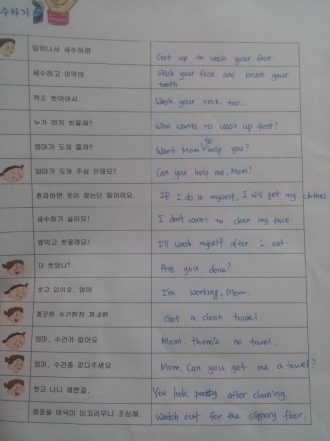 수하기
일어나서 세수하렴
Get up to wash your face.
세수하고 이닦아
Wash your face and brush your
teeth.
목도 씻어야지.
Wash your neck, too.
누가 먼저 씻을래?
Who wants to wash up first?
엄마가 도와 줄까?
Want Mom to help you?
엄마가 도와 주심 안돼요?
Can you help me, Mom?
혼자하면 옷이 젖는단 말이에요.
If I do it myself, I will get my clothes
세수하기 싫어요!
I don't want to clean my face.
밥먹고 씻을래요!
I'll wash myself after I eat.
다 씻었니?
Are you done?
씻고 있어요, 엄마
I'm working, Mom.
깨끗한 수건한장 꺼내렴
Get a clean towel.
엄마, 수건이 없어요
Mom, there's no towel.
엄마, 수건좀 갖다주세요
Mom, Can you get me a towel?
씻고 나니 예쁜걸.
You look pretty after cleaning.
화장실 바닥이 미끄러우니 조심해.
Watch out for the slippery floor.